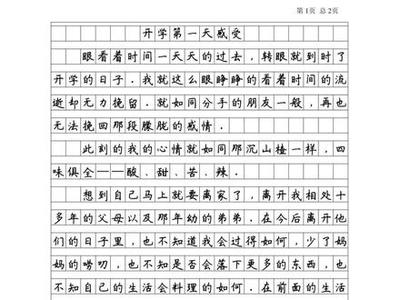 第1页 总2页
开学第一天感受
眼看着时间一天天的过去，转眼就到时了
开学的日子．我就这么眼睁睁的看着时间的流
逝却无力挽留．就如同分手的朋友一般，再也
无法挽回那段朦胧的感情．
此刻的我的心情就如同那沉山楂一样，四
味俱全——酸、甜、苦、辣．
想到自己马上就要离家了，离开我相处十
多年的父母以及那年幼的弟弟．在今后离开他
们的日子里，也不知道我会过得如何，少了妈
妈的唠叨，也不知是否会落下更多的东西，也
不知自己的生活会料理的如何．在前面的生活